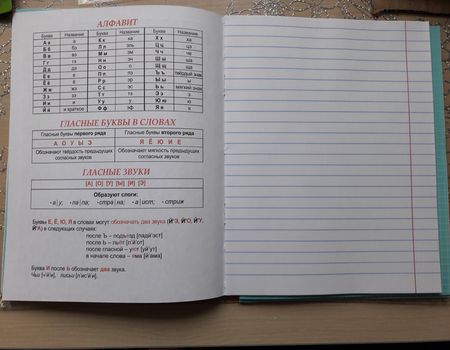 АЛФАВИТ
Буква Название Буква Название Буква Название
А а а К к ка Х х ха
Б б бэ Л л эль Ц ц цэ
В в вэ М м эм Ч ч че
Г г гэ Н н эн Ш ш ша
Д д дэ О о о Щ щ ща
Е е е П п пэ Ъ ъ твёрдый знак
Ё ё ё Р р эр Ы ы ы
Ж ж жэ С с эс Ь ь мягкий знак
З з зэ Т т тэ Э э э
И и и У у у Ю ю ю
Й й и краткое Ф ф эф Я я я
ГЛАСНЫЕ БУКВЫ В СЛОВАХ
Гласные буквы первого ряда Гласные буквы второго ряда
А О У Ы Э Я Ё Ю И Е
Обозначают твёрдость предыдущих согласных звуков Обозначают мягкость предыдущих согласных звуков
ГЛАСНЫЕ ЗВУКИ
[А] [О] [У] [Ы] [И] [Э]
Образуют слоги:
• а|у; • па|па; • стра|на; • а|ист; • стриж
Буквы Е, Ё, Ю, Я в словах могут обозначать два звука (Й'Э, Й'О, Й'У,
Й'А) в следующих случаях:
после Ъ – подъезд [падй'эст]
после Ь – льёт [л'й'от]
после гласной – уют [уй'ут]
в начале слова – яма [й'ама]
Буква И после Ь обозначает два звука.
Чьи [ч'й'и], лисьи [л'ис'й'и].